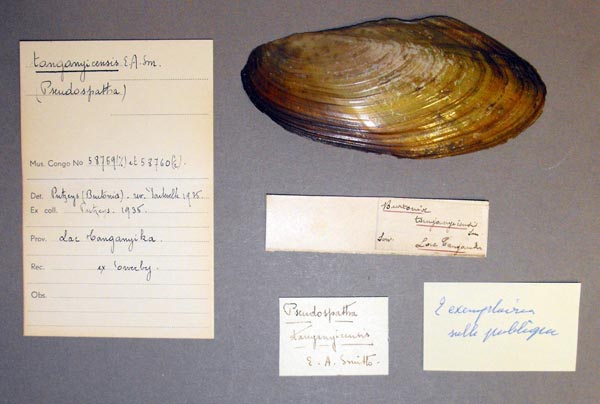 tanganyicensis E.A.Sm.
(Pseudospatha)
Mus. Congo No 58759(½) et 58760(½)
Det. Putzeys (Burtonia). rev. 1935.
Ex coll. Putzeys. 1935.
Prov. Lac Tanganyika.
Rec. ex Sowerby.
Obs.
Burtonia
tanganyicensis
Sm
Sow. Lac Tanganika
Pseudospatha
tanganyicensis
E. A. Smith
2 exemplaires
salle publique